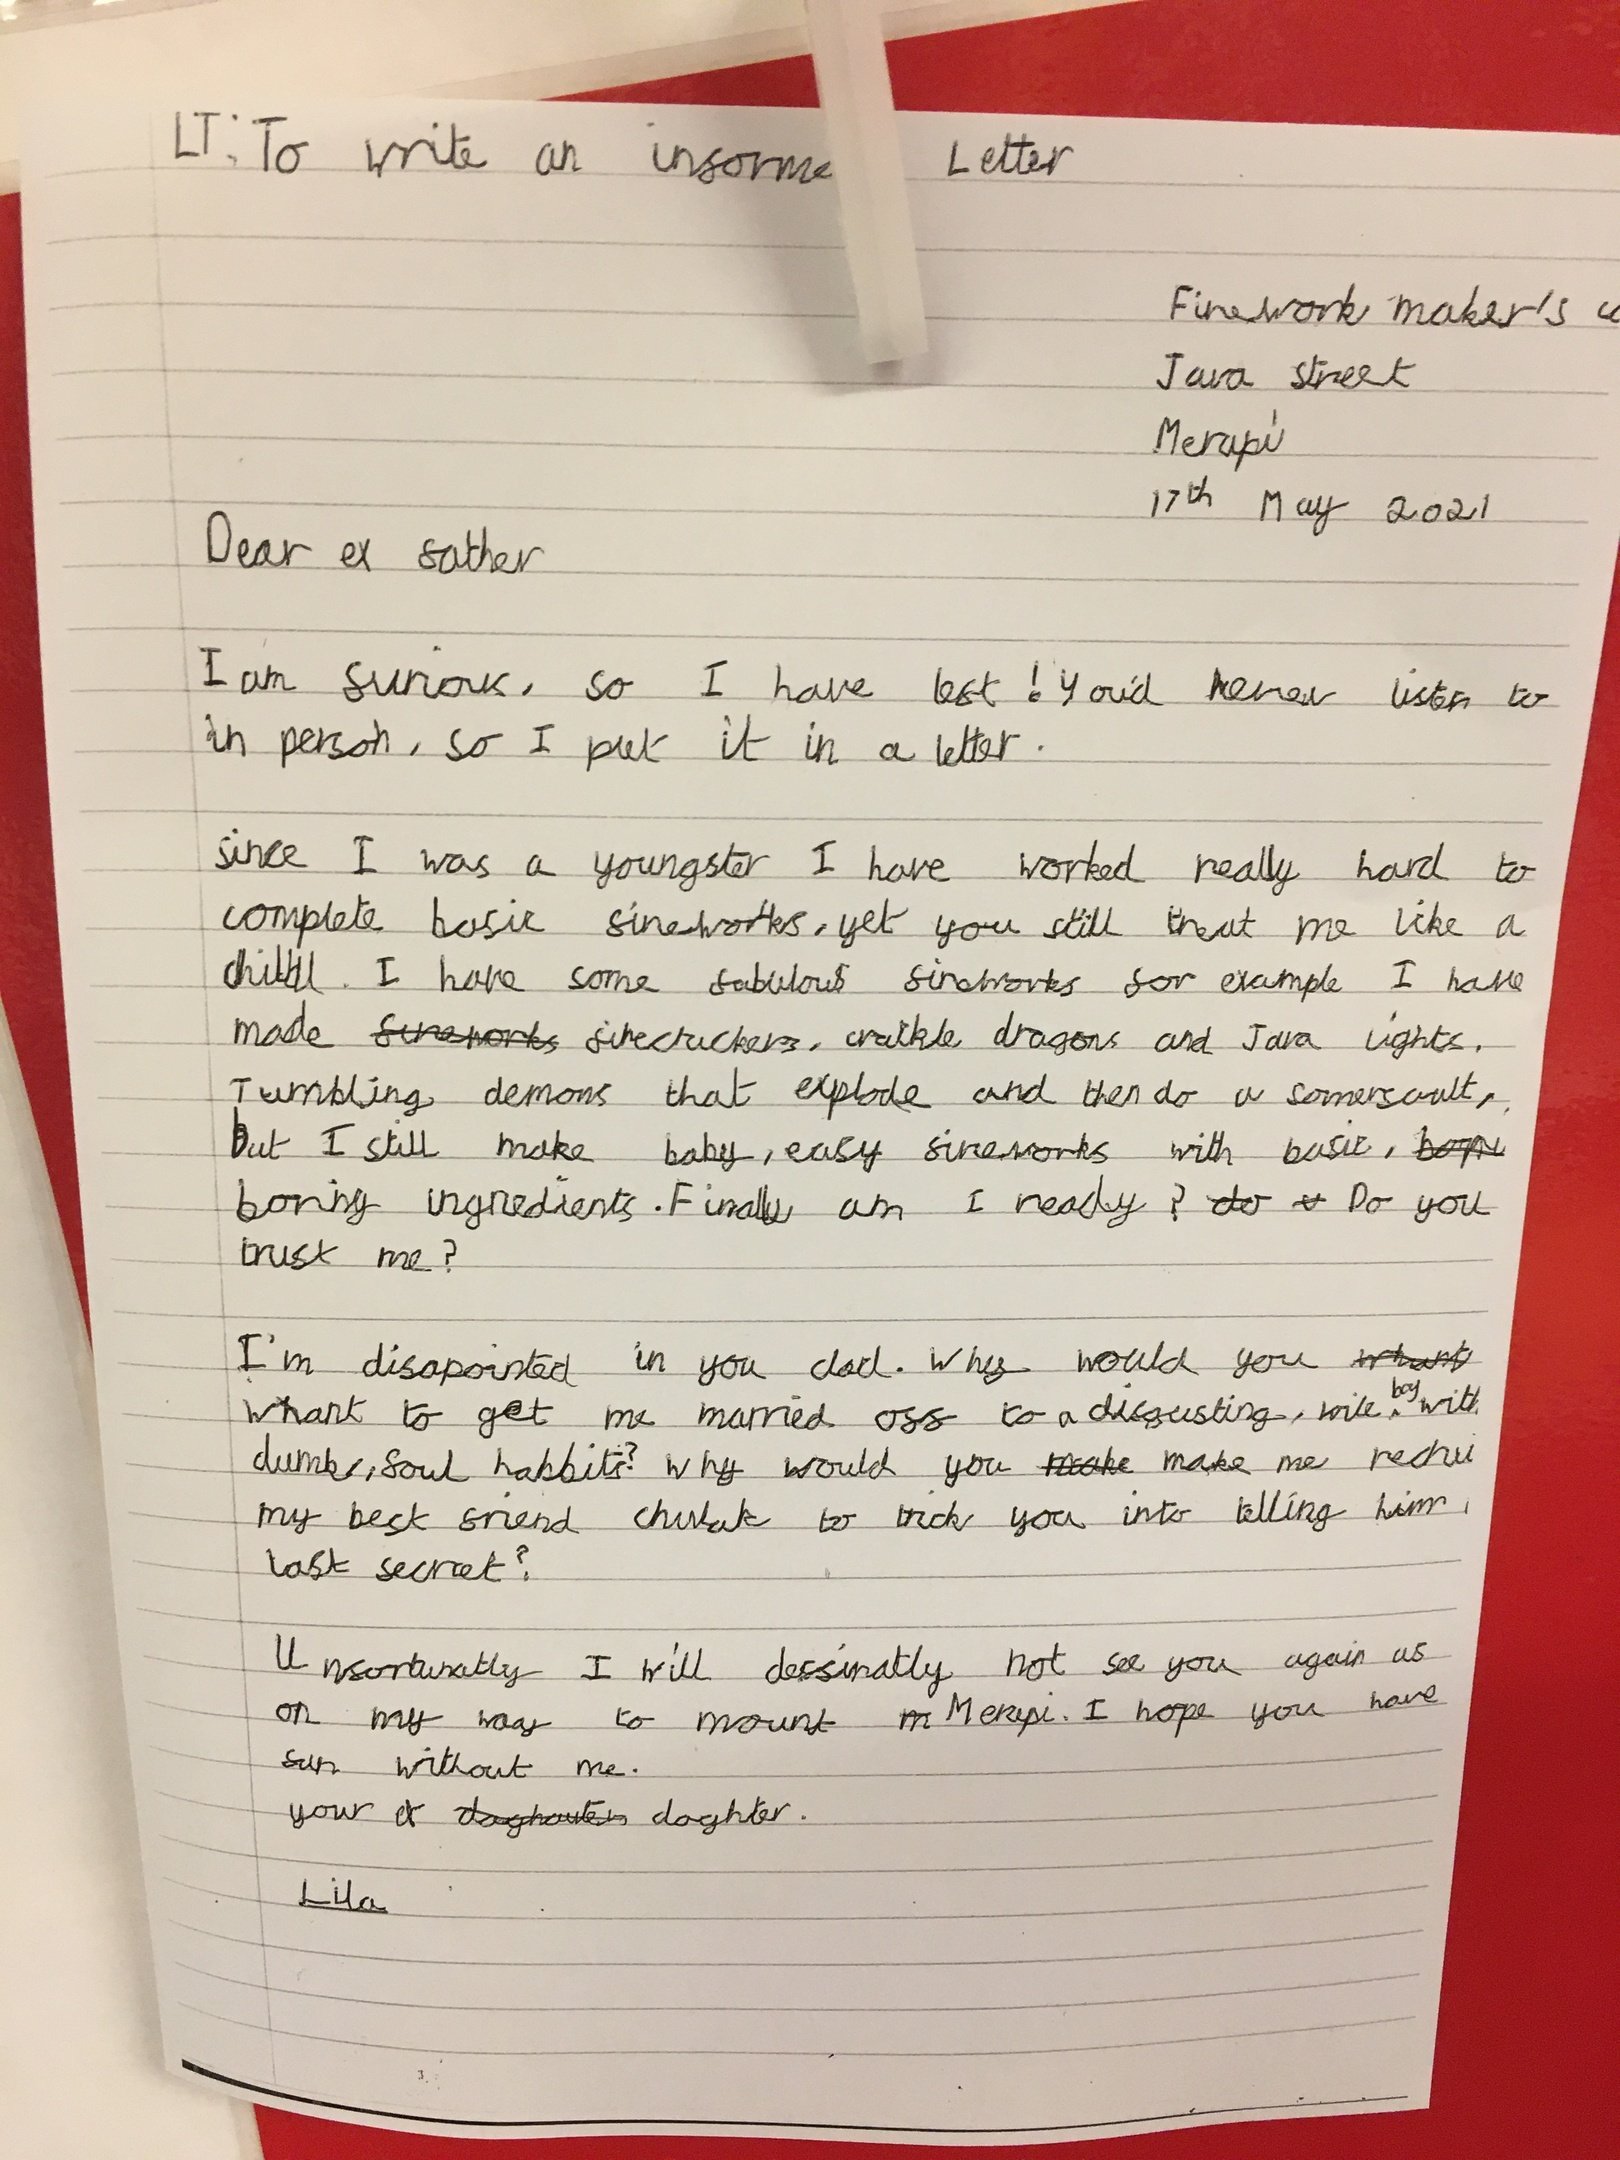 LT: To write an Letter
Firework maker's
Java street
Merapi
17th May 2021
Dear ex father
I am furious, so I have left! You'd never listen to
in person, so I put it in a letter.
since I was a youngster I have worked really hard to
complete basic fireworks, yet you still treat me like a
child. I have some fabulous fireworks for example I have
made fireworks firecrackers, crackle dragons and Java lights.
Tumbling demons that explode and then do a somersault,
but I still make baby, easy fireworks with basic,
boring ingredients. Finally am I ready? do Do you
trust me?
I'm disapointed in you dad. Why would you whant
whant to get me married off to a disgusting, vile boy with
dumb, foul habbits? Why would you make make me recrui
my best friend chulak to trick you into telling him
last secret?
Unfortunatly I will deffinatly not see you again as
on my way to mount m Merapi. I hope you have
fun without me.
your ex doghter.
Lila